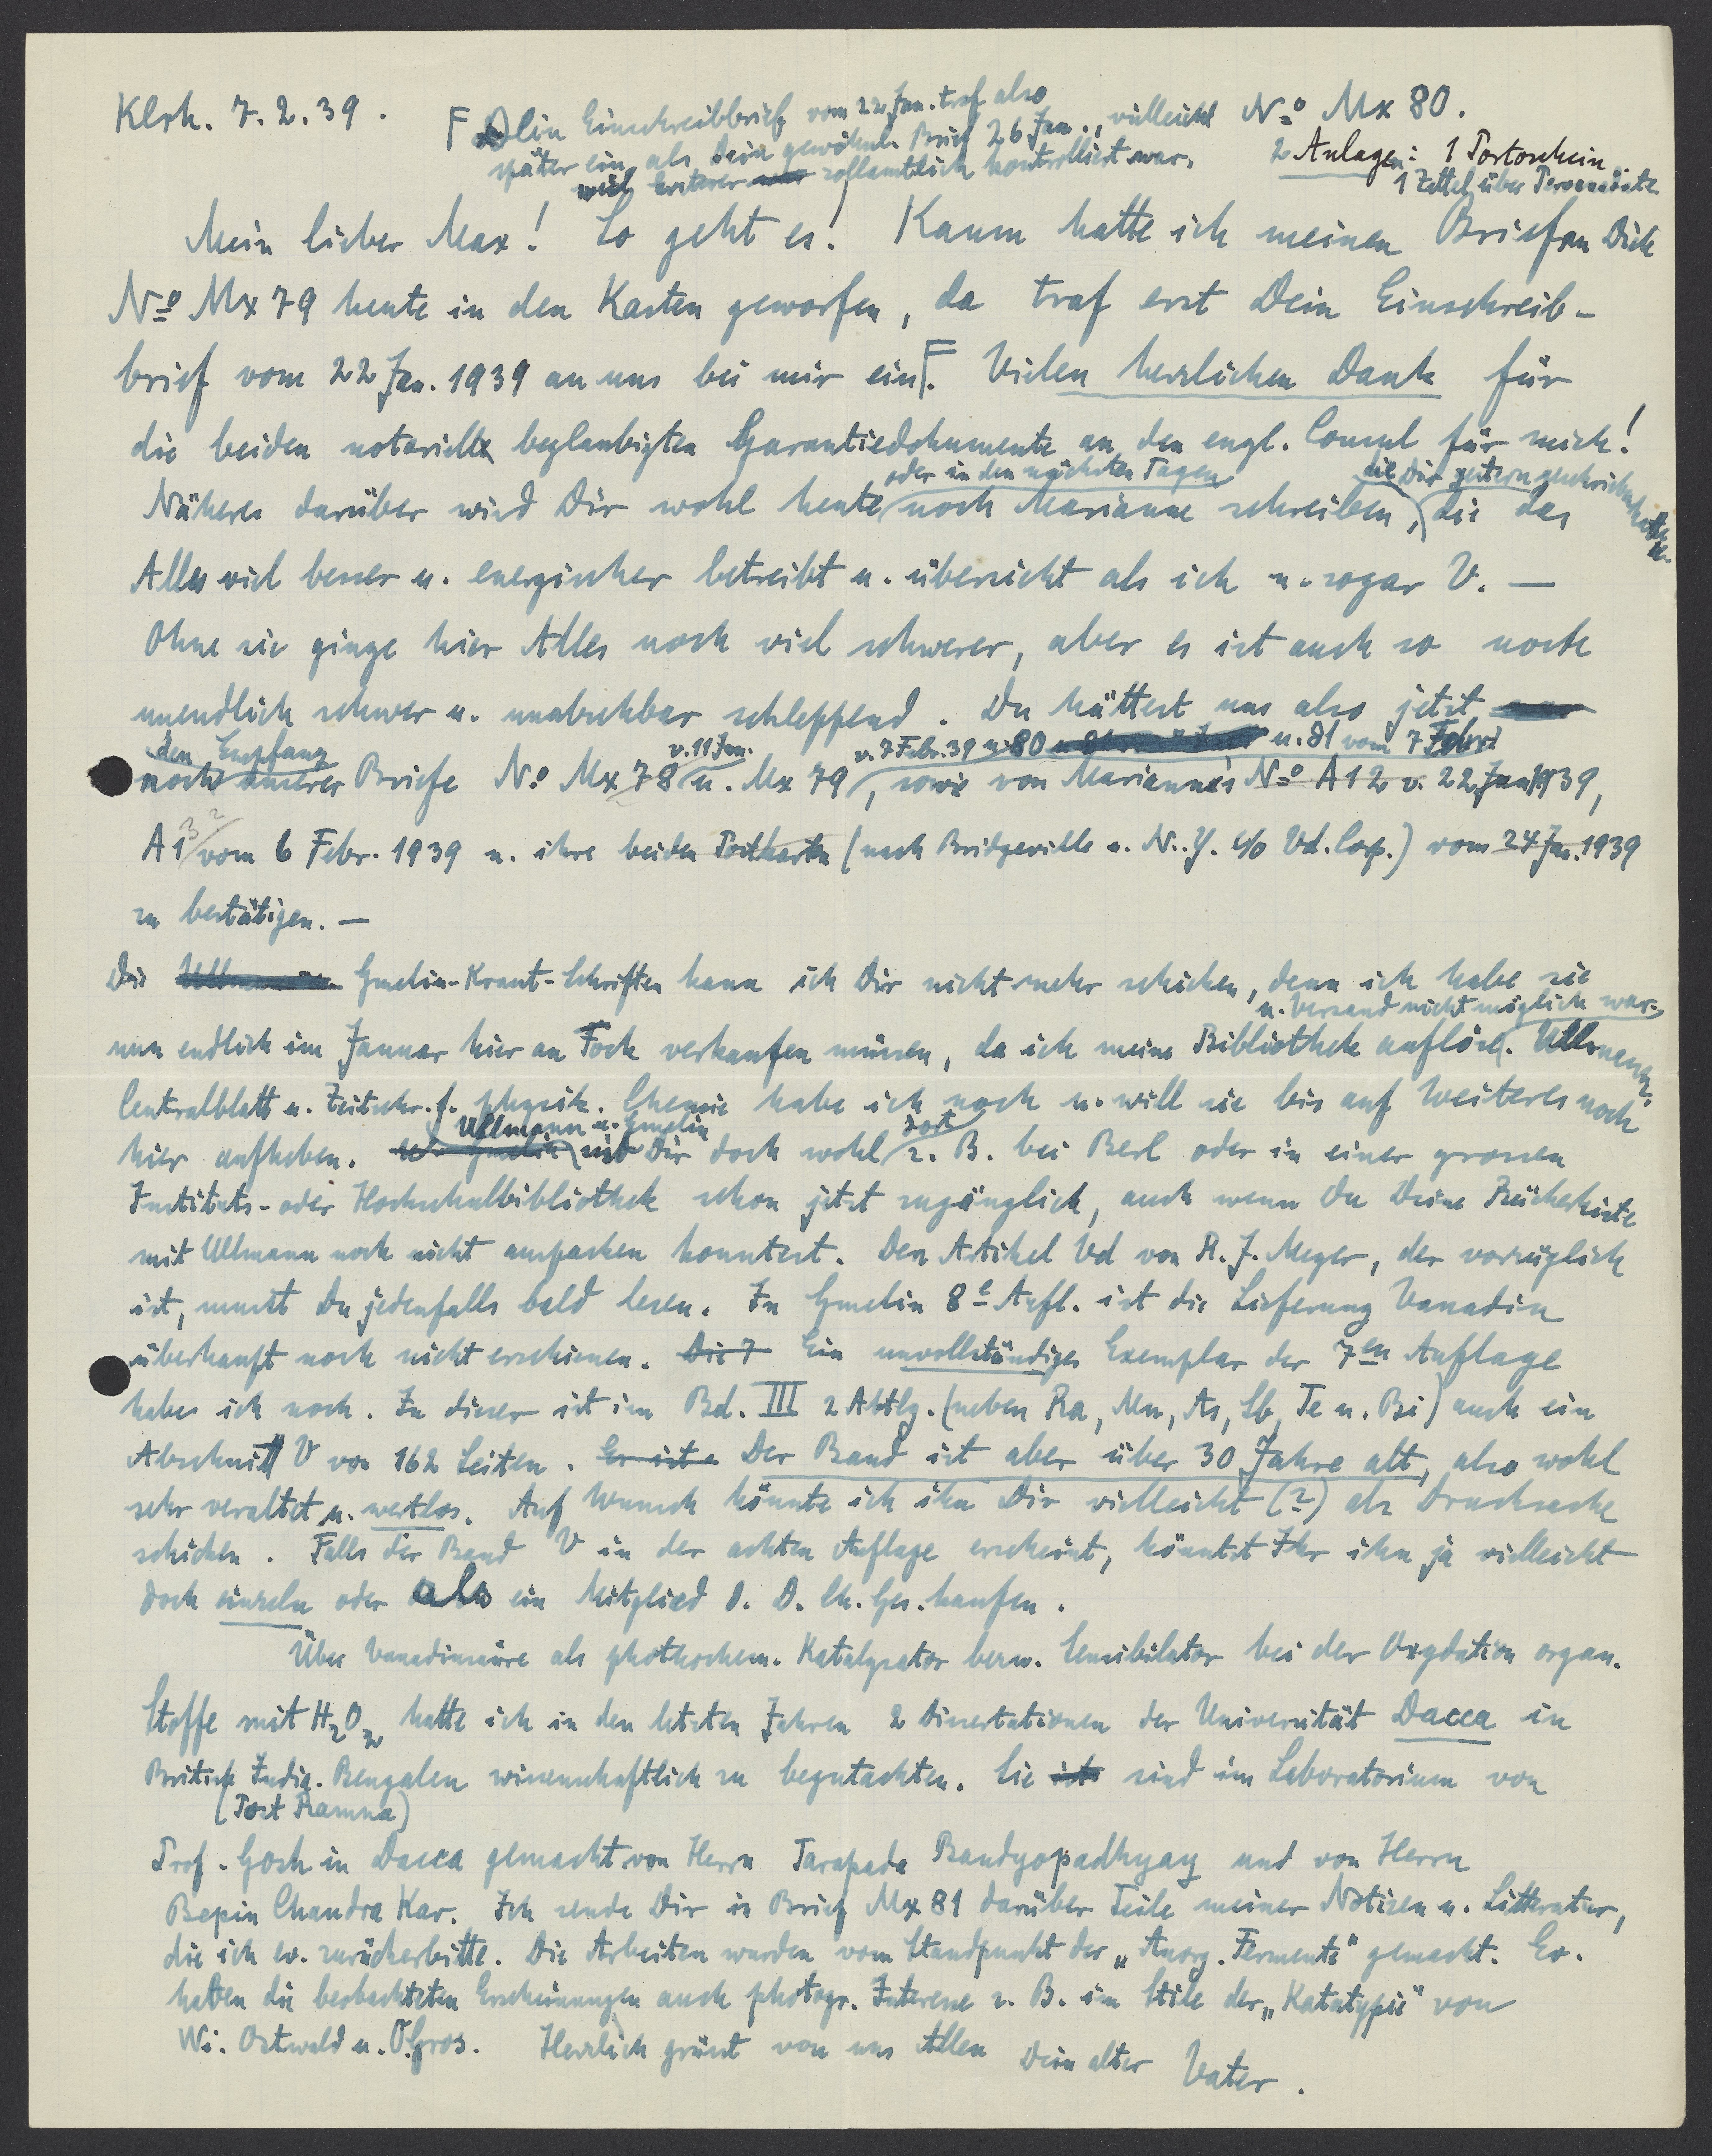 Klrh. 7.2.39.
No Mx 80.
2 Anlagen: 1 Portoschein
1 Zettel über Peroxydate
F Dein Einschreibbrief vom 22 Jan. traf also
später ein als Dein gewöhnl. Brief 26 Jan., vielleicht
weil ersterer zollamtlich kontrolliert war.
Mein lieber Max! So geht es! Kaum hatte ich meinen Brief an Dich
No Mx 79 heute in den Kasten geworfen, da traf erst Dein Einschreib-
brief vom 22 Jan. 1939 an uns bei mir ein F. Vielen herzlichen Dank für
die beiden notariell beglaubigten Garantiedokumente an den engl. Consul für mich!
oder in den nächsten Tagen die Dir gestern geschrieben hatte u.
Näheres darüber wird Dir wohl heute noch Marianne schreiben, die das
Alles viel besser u. energischer betreibt u. übersieht als ich u. sogar V. —
Ohne sie ginge hier Alles noch viel schwerer, aber es ist auch so noch
unendlich schwer u. unabsehbar schleppend. Du hättest uns also jetzt
den Empfang v. 11 Jan. v. 7 Febr. 39 u. 80 u. 81 vom 7 Febr.
noch unserer Briefe No Mx 78 u. Mx 79, sowie von Marianne's No A12 v. 22 Jan 1939,
A13 vom 6 Febr. 1939 u. ihre beiden Postkarten (nach Bridgeville u. N.Y. c/o Vd. Corp.) vom 24 Jan. 1939
zu bestätigen. —
Die Gmelin-Kraut-Schriften kann ich Dir nicht mehr schicken, denn ich habe sie
u. Versand nicht möglich war.
nun endlich im Januar hier an Fock verkaufen müssen, da ich meine Bibliothek auflöse. Ullmann,
Centralblatt u. Zeitschr. f. physik. Chemie habe ich noch u. will sie bis auf Weiteres noch
Ullmann u. Gmelin dort
hier aufheben. sind Dir doch wohl z. B. bei Berl oder in einer grossen
Instituts- oder Hochschulbibliothek schon jetzt zugänglich, auch wenn Du Deine Bücherkiste
mit Ullmann noch nicht auspacken konntest. Den Artikel Vd von R. J. Meyer, der vorzüglich
ist, musst Du jedenfalls bald lesen. In Gmelin 8e Aufl. ist die Lieferung Vanadin
überhaupt noch nicht erschienen. Die 7 Ein unvollständiges Exemplar der 7en Auflage
habe ich noch. In dieser ist im Bd. III 2 Abtlg. (neben Ra, Mn, As, Sb, Te u. Bi) auch ein
Abschnitt V von 162 Seiten. Es ist Der Band ist aber über 30 Jahre alt, also wohl
sehr veraltet u. wertlos. Auf Wunsch könnte ich ihn Dir vielleicht (?) als Drucksache
schicken. Falls der Band V in der achten Auflage erscheint, könntet Ihr ihn ja vielleicht
doch einzeln oder als ein Mitglied d. D. Ch. Ges. kaufen.
Über Vanadinsäure als photochem. Katalysator bezw. Sensibilator bei der Oxydation organ.
Stoffe mit H2O2 hatte ich in den letzten Jahren 2 Dissertationen der Universität Dacca in
Britisch Indien. Bengalen wissenschaftlich zu begutachten. Sie sind im Laboratorium von
(Post Ramna)
Prof. Gosh in Dacca gemacht von Herrn Tarapada Bandyopadhyay und von Herrn
Bepin Chandra Kar. Ich sende Dir in Brief Mx 81 darüber Teile meiner Notizen u. Litteratur,
die ich ev. zurückerbitte. Die Arbeiten wurden vom Standpunkt der „Anorg. Fermente" gemacht. Ev.
haben die beobachteten Erscheinungen auch photogr. Interesse z. B. im Stile der „Katatypie" von
Wi. Ostwald u. O. Gros. Herzlich grüsst von uns Allen Dein alter Vater.